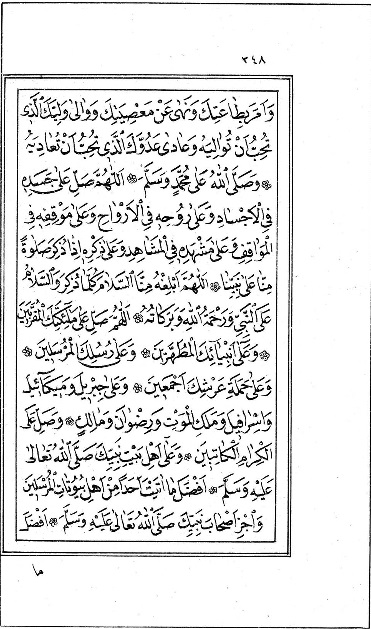 ٢٤٨
وَاَمَرَ بِطَاعَتِكَ وَنَهٰى عَنْ مَعْصِيَتِكَ وَوَالٰى وَلِيَّكَ الَّذٖى
تُحِبُّ اَنْ تُوَالِيَهُ وَعَادٰى عَدُوَّكَ الَّذٖى تُحِبُّ اَنْ تُعَادِيَهُ
۞ وَصَلَّى اللهُ عَلٰى مُحَمَّدٍ وَسَلَّمَ ۞ اَللّٰهُمَّ صَلِّ عَلٰى جَسَدِهٖ
فِى الْاَجْسَادِ وَعَلٰى رُوحِهٖ فِى الْاَرْوَاحِ وَعَلٰى مَوْقِفِهٖ فِى
الْمَوَاقِفِ وَعَلٰى مَشْهَدِهٖ فِى الْمَشَاهِدِ وَعَلٰى ذِكْرِهٖ اِذَا ذُكِرَ صَلٰوةً
مِنَّا عَلٰى نَبِيِّنَا ۞ اَللّٰهُمَّ اَبْلِغْهُ مِنَّا السَّلَامَ كُلَّمَا ذُكِرَ وَالسَّلَامُ
عَلَى النَّبِىِّ وَرَحْمَةُ اللهِ وَبَرَكَاتُهُ ۞ اَللّٰهُمَّ صَلِّ عَلٰى مَلٰئِكَتِكَ الْمُقَرَّبٖينَ
۞ وَعَلٰى اَنْبِيَائِكَ الْمُطَهَّرٖينَ ۞ وَعَلٰى رُسُلِكَ الْمُرْسَلٖينَ
وَعَلٰى حَمَلَةِ عَرْشِكَ اَجْمَعٖينَ ۞ وَعَلٰى جِبْرٖيلَ وَمٖيكَآئٖلَ
وَاِسْرَافٖيلَ وَمَلَكِ الْمَوْتِ وَرِضْوَانَ وَمَالِكٍ ۞ وَصَلِّ عَلَى
الْكِرَامِ الْكَاتِبٖينَ ۞ وَعَلٰى اَهْلِ بَيْتِ نَبِيِّكَ صَلَّى اللهُ تَعَالٰى
عَلَيْهِ وَسَلَّمَ ۞ اَفْضَلَ مَا اٰتَيْتَ اَحَدًا مِنْ اَهْلِ بُيُوتَاتِ الْمُرْسَلٖينَ
وَاجْزِ اَصْحَابَ نَبِيِّكَ صَلَّى اللهُ تَعَالٰى عَلَيْهِ وَسَلَّمَ ۞ اَفْضَلَ
ما